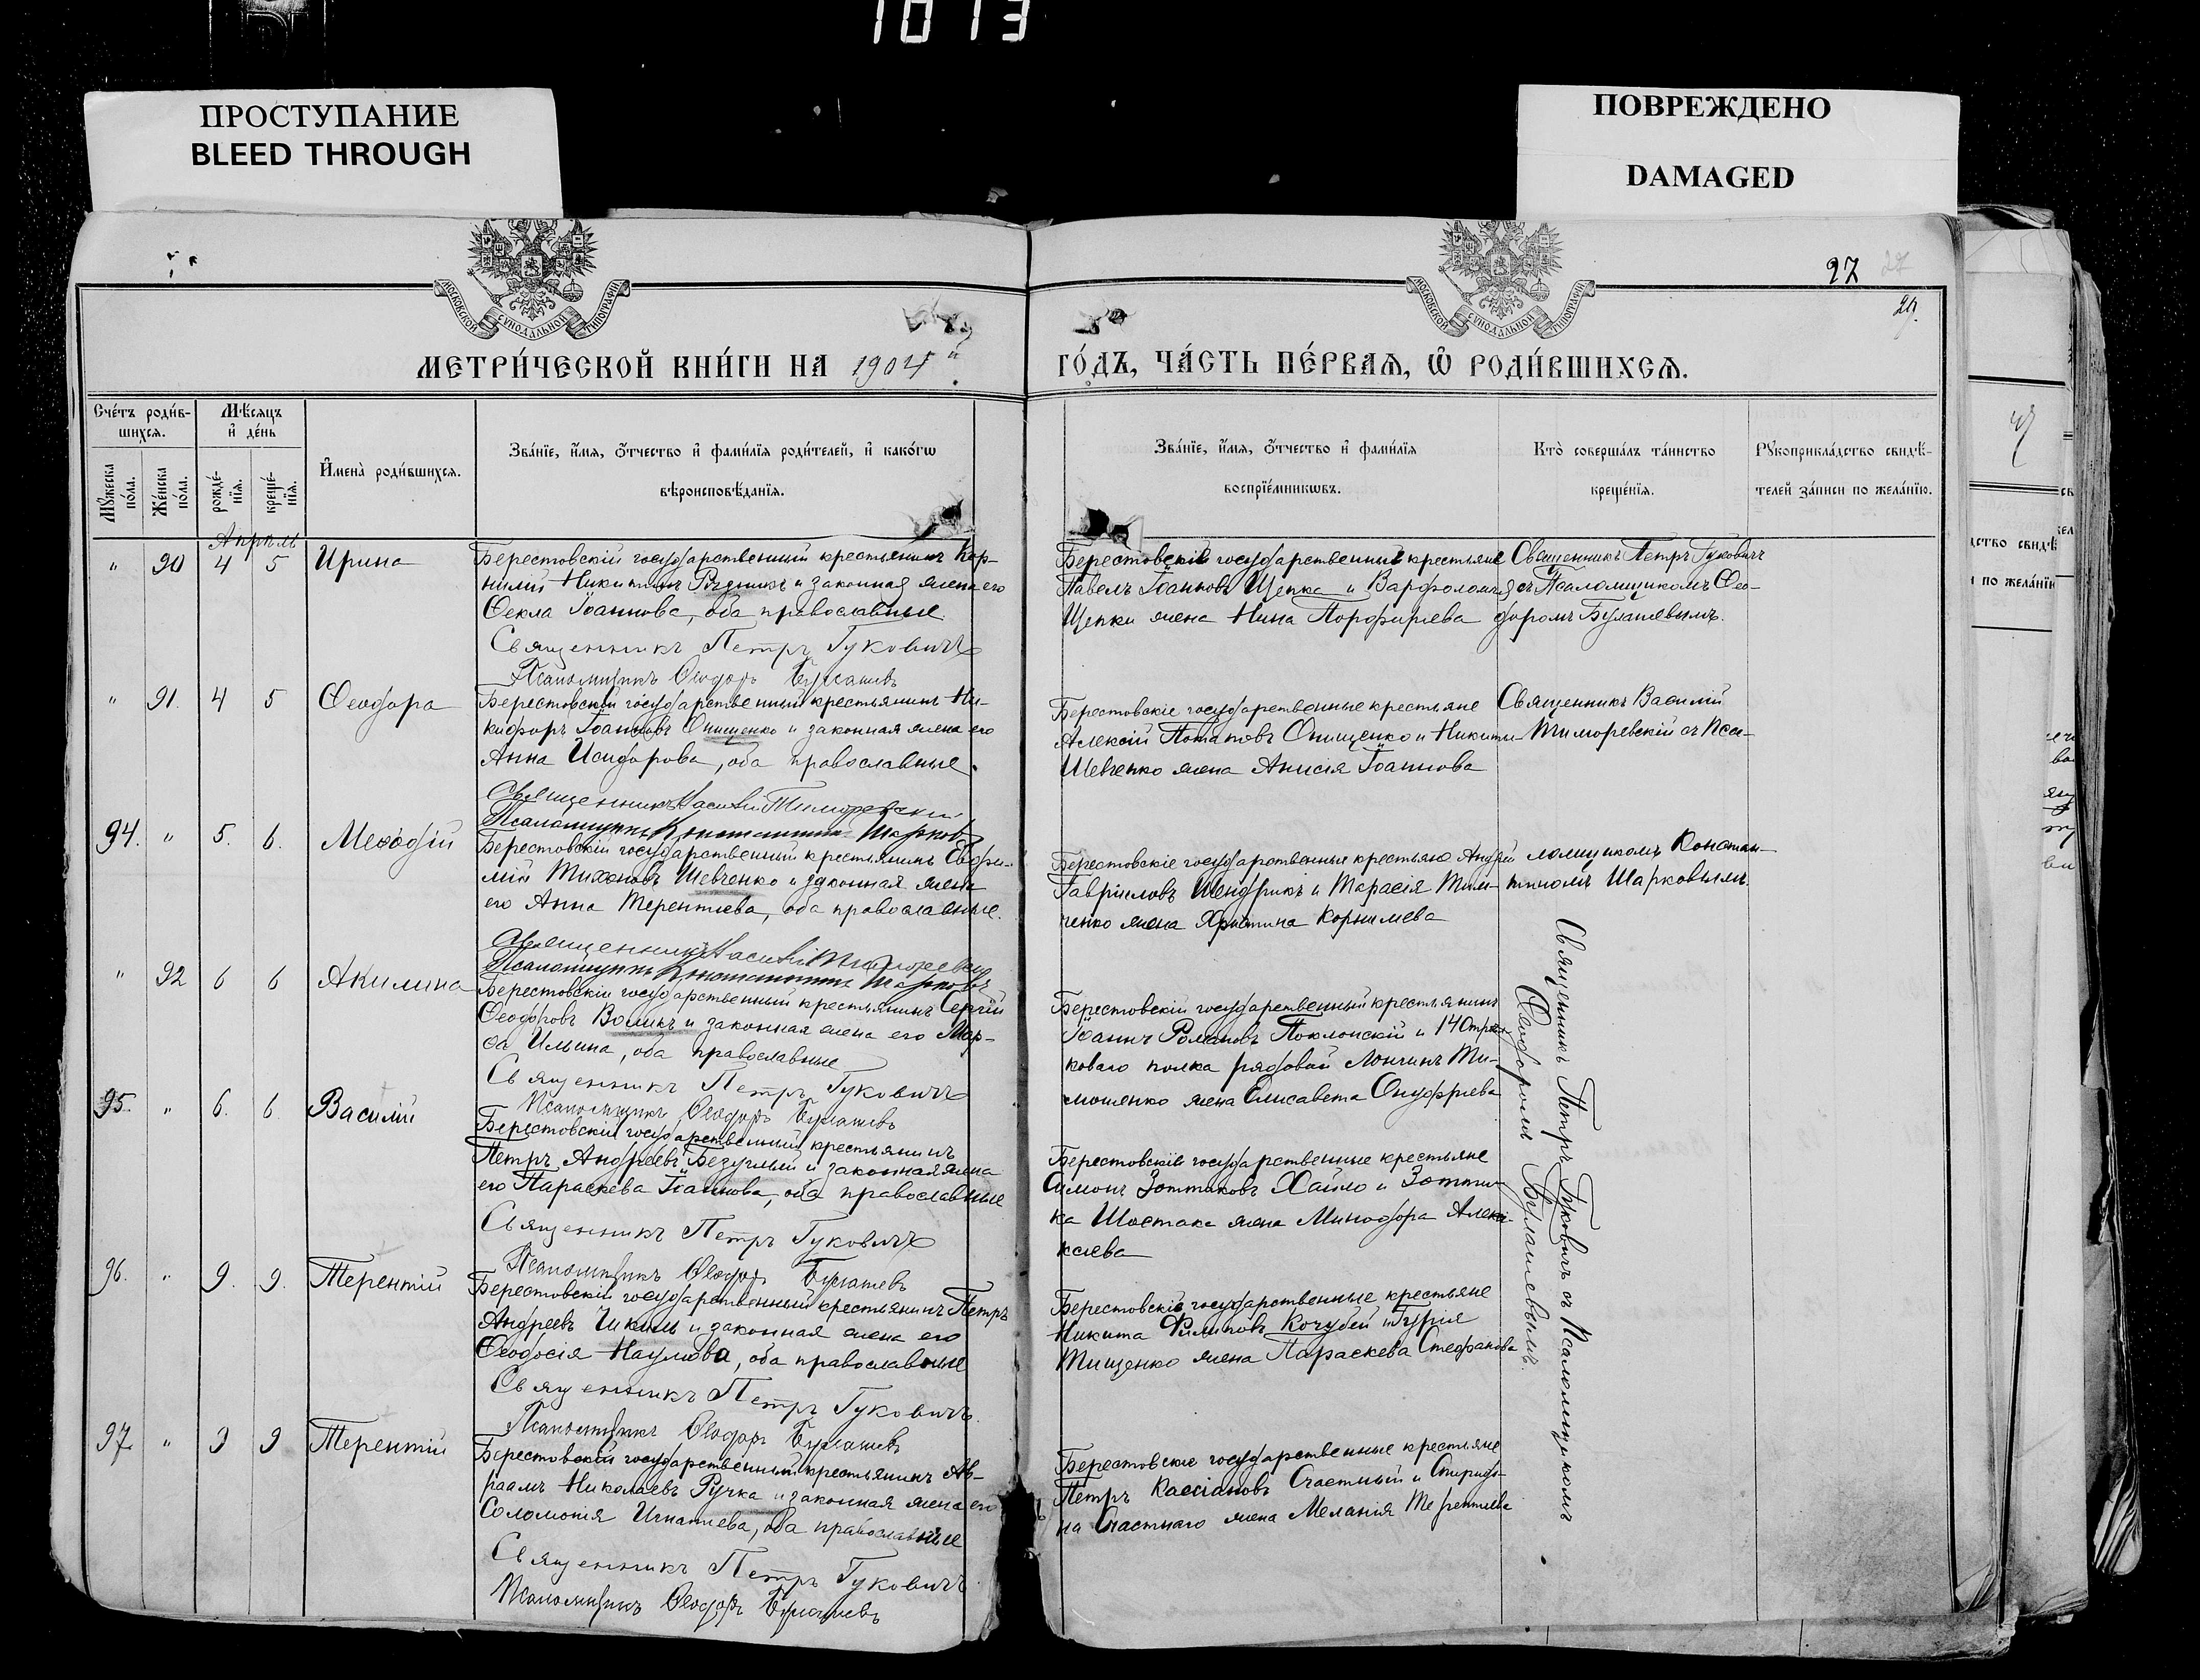 1013
ПРОСТУПАНИЕ
BLEED THROUGH
ПОВРЕЖДЕНО
DAMAGED
МОСКОВСКОЙ СѴНОДАЛЬНОЙ ТИПОГРАФІИ
МОСКОВСКОЙ СѴНОДАЛЬНОЙ ТИПОГРАФІИ
27
МЕТРИ́ЧЕСКОЙ КНИ́ГИ НА 1904
ГО́ДЪ, ЧА́СТЬ ПЕ́РВАѦ, Ѡ РОДИ́ВШИХСѦ.
Сче́тъ роди́в-
шихсѧ.
Мꙋ́жеска по́ла.
Же́нска по́ла.
Мѣ́сѧцъ
и҆ де́нь
рожде́-
нїѧ.
креще́-
нїѧ.
И҆мена̀ роди́вшихсѧ.
Зва́нїе, и҆́мѧ, ѻ҆́тчество и҆ фами́лїѧ роди́телей, и҆ како́гѡ
вѣроисповѣ́данїѧ.
Зва́нїе, и҆́мѧ, ѻ҆́тчество и҆ фами́лїѧ
воспрїе́мникѡвъ.
Кто̀ соверша́лъ та́инство
креще́нїѧ.
Рꙋкоприкла́дство свидѣ́-
телей за́писи по жела́нїю.
Апрѣль
" 90 4 5 Ирина
Берестовскій государственный крестьянинъ Кор-
нилій Никитинъ Рудникъ и законная жена его
Ѳекла Іоаннова, оба православные
Священникъ Петръ Гуковичъ
Псаломщикъ Ѳеодоръ Булашевъ
Берестовскіе государственные крестьяне
Павелъ Іоанновъ Щепка и Варфоломея
Щепки жена Нина Порфирьева
Священникъ Петръ Гуковичъ
съ Псаломщикомъ Ѳео-
доромъ Булашевымъ.
" 91. 4 5 Ѳеодора
Берестовскій государственный крестьянинъ Ни-
кифоръ Іоанновъ Онищенко и законная жена его
Анна Исидорова, оба православные.
Священникъ Василій Тиморевскій
Псаломщикъ Константинъ Шарковъ
Берестовскіе государственные крестьяне
Алексій Потаповъ Онищенко и Никиты
Шевченко жена Анисія Іоаннова
Священникъ Василій
Тиморевскій съ Пса-
94. " 5. 6. Меѳодій
Берестовскій государственный крестьянинъ Евфи-
мій Тихоновъ Шевченко и законная жена
его Анна Терентьева, оба православные.
Священникъ Василій Тиморевскій
Псаломщикъ Константинъ Шарковъ
Берестовскіе государственные крестьяне Андрей
Гавріиловъ Шендрикъ и Тарасія Тим-
ченко жена Христина Корнилева
ломщикомъ Констан-
тиномъ Шарковымъ.
" 92 6 6 Акилина
Берестовскій государственный крестьянинъ Сергій
Ѳеодоровъ Воликъ и законная жена его Мар-
ѳа Ильина, оба православные
Священникъ Петръ Гуковичъ
Псаломщикъ Ѳеодоръ Булашевъ
Берестовскій государственный крестьянинъ
Іоаннъ Романовъ Поклонскій и 14 Стрѣл-
коваго полка рядовой Лонгинъ Ти-
мошенко жена Елисавета Онуфріева
Священникъ Петръ Гуковичъ съ Псаломщикомъ
Ѳеодоромъ Булашевымъ.
95. " 6. 6. Василій
Берестовскій государственный крестьянинъ
Петръ Андреевъ Безуглый и законная жена
его Параскева Іоаннова, оба православные
Священникъ Петръ Гуковичъ
Псаломщикъ Ѳеодоръ Булашевъ
Берестовскіе государственные крестьяне
Симонъ Зотиковъ Хайло и Зоти-
ка Шостака жена Минодора Алек-
сѣева
96. " 9. 9. Терентій
Берестовскій государственный крестьянинъ Петръ
Андреевъ Чикиль и законная жена его
Ѳеодосія Наумова, оба православные
Священникъ Петръ Гуковичъ
Псаломщикъ Ѳеодоръ Булашевъ
Берестовскіе государственные крестьяне
Никита Филиповъ Кочубей и Гурія
Тищенко жена Параскева Стефанова
97. " 9 9 Терентій
Берестовскій государственный крестьянинъ Ав-
раамъ Николаевъ Ручка и законная жена его
Соломонія Игнатіева, оба православные
Священникъ Петръ Гуковичъ
Псаломщикъ Ѳеодоръ Булашевъ
Берестовскіе государственные крестьяне
Петръ Кассіановъ Счастный и Спиридо-
на Счастнаго жена Меланія Терентіева